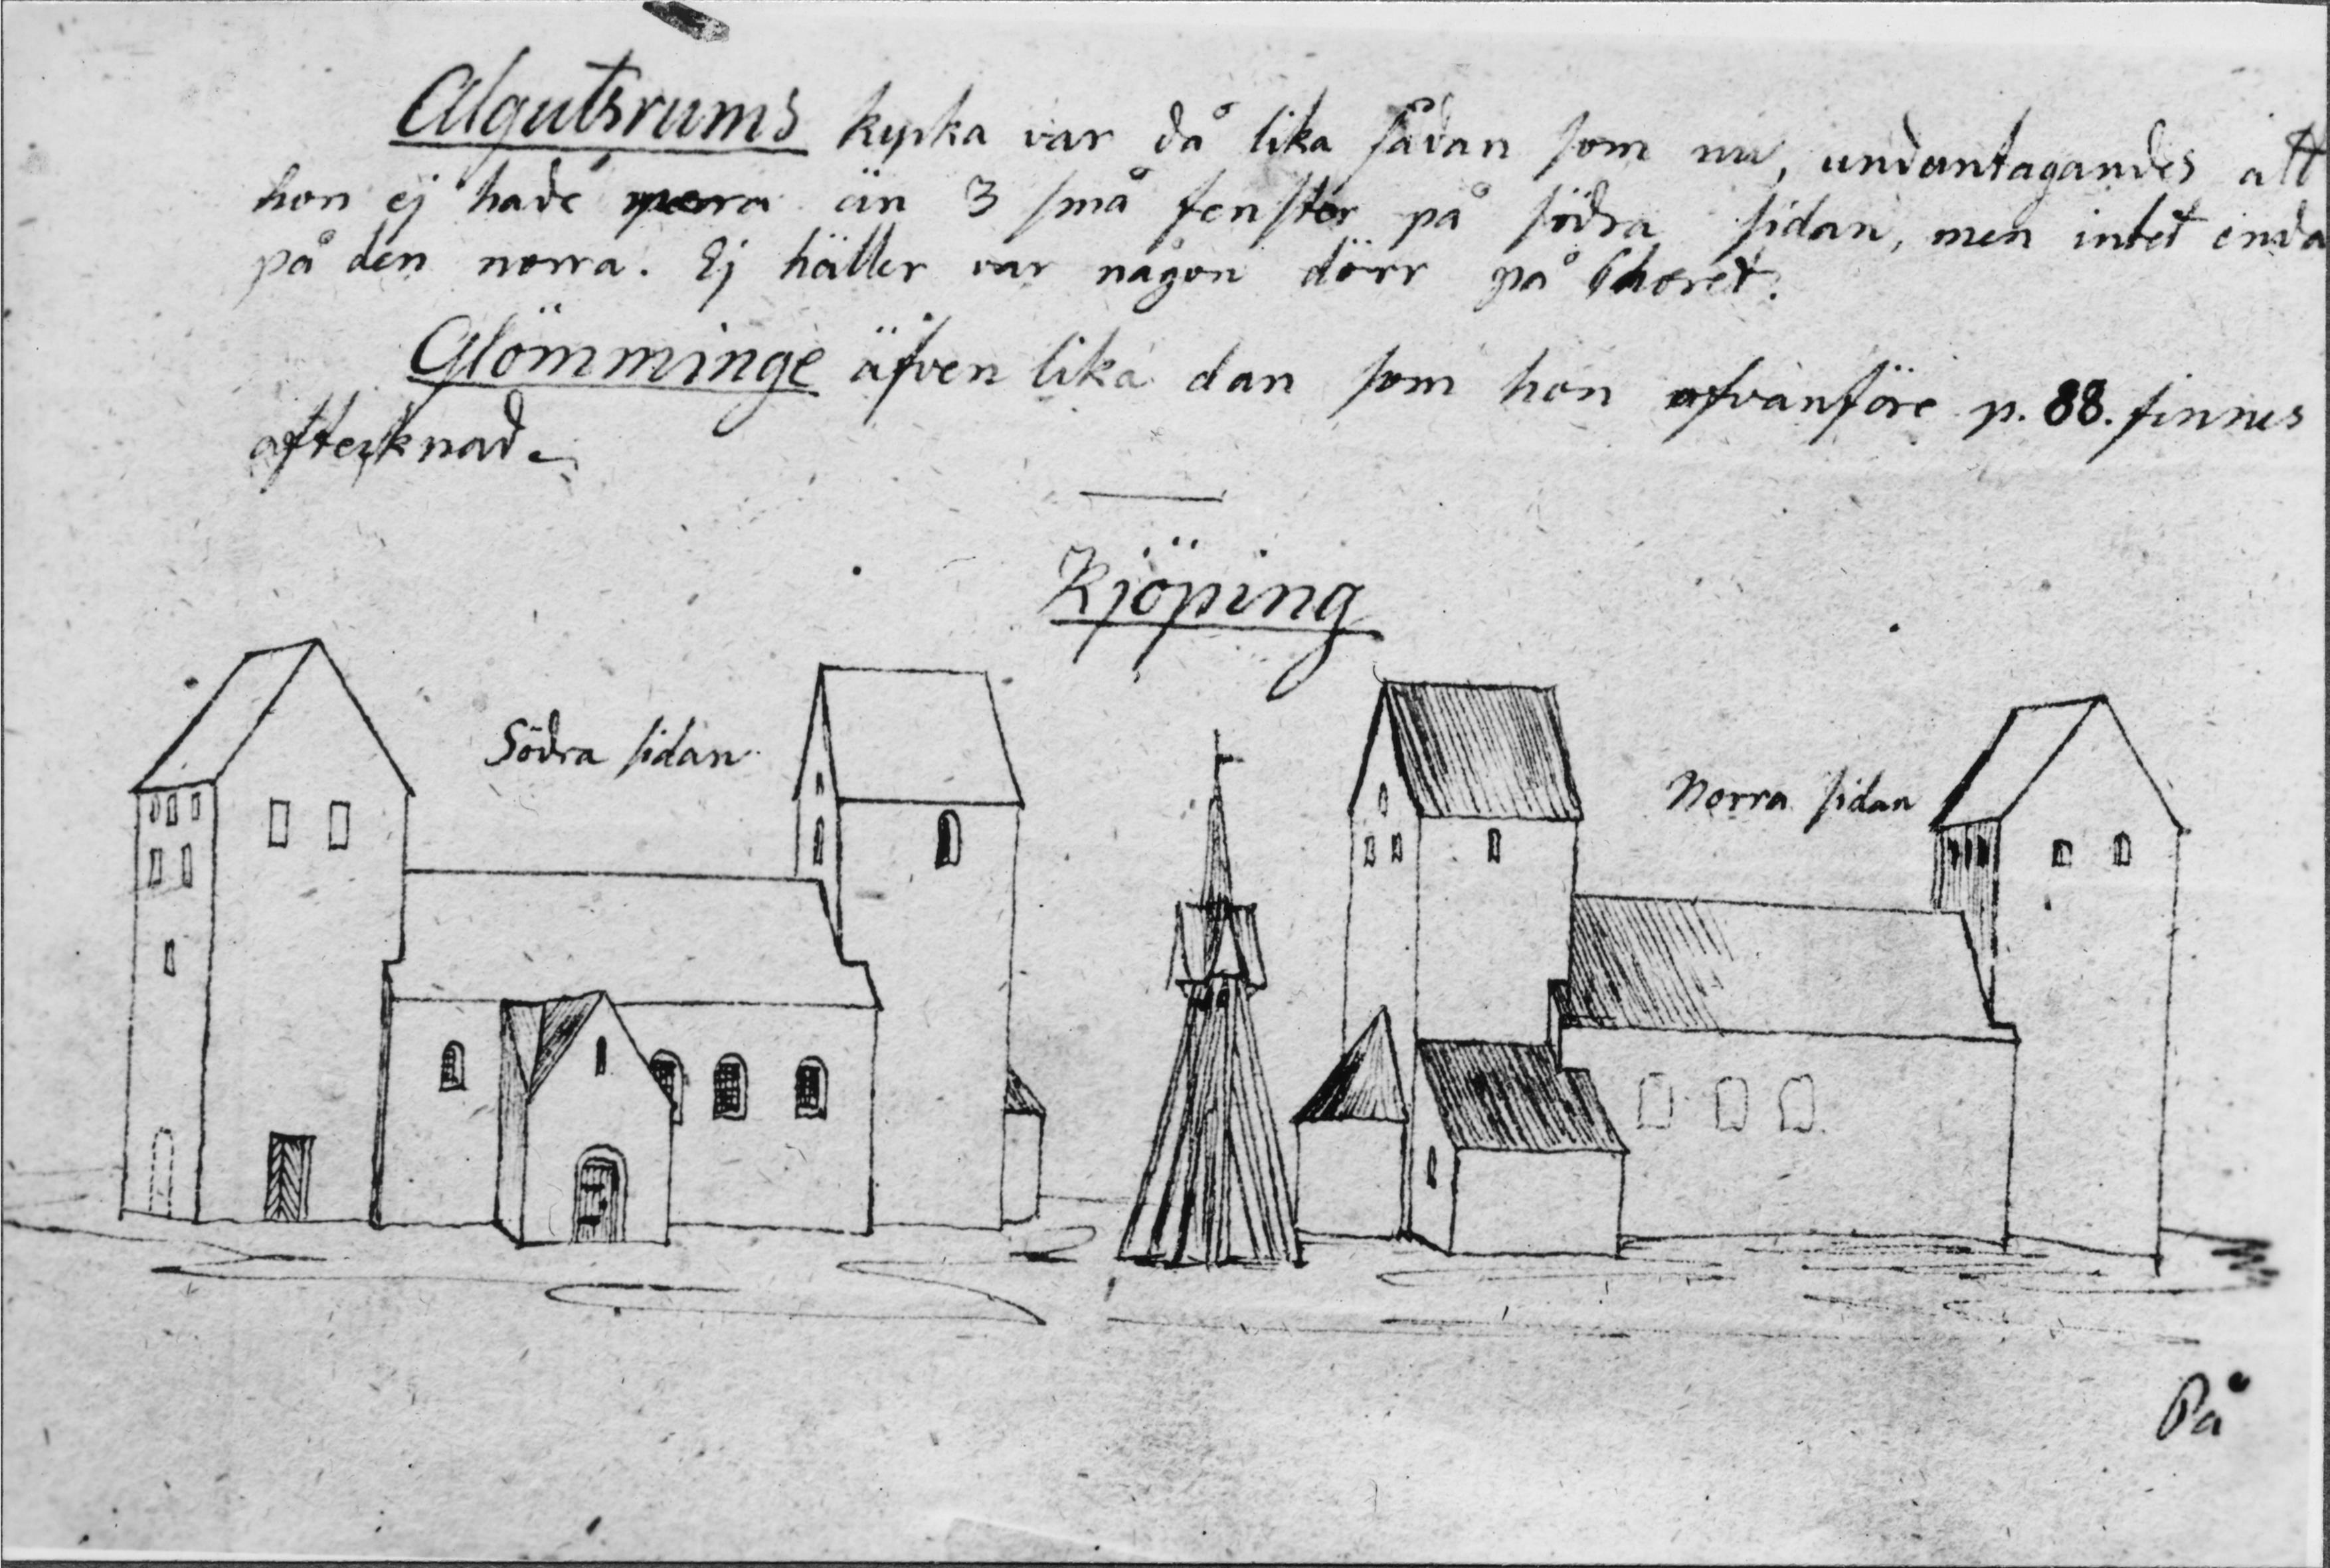 Algutsrums kyrka var då lika sådan som nu, undantagandes att
hon ej hade mera än 3 små fenster på södra sidan, men intet enda
på den norra. Ej häller var någon dörr på Choret.
Glömminge äfven lika dan som hon ofvanföre p. 88. finnes
afteiknad.
Kjöping
Södra sidan
Norra sidan
På